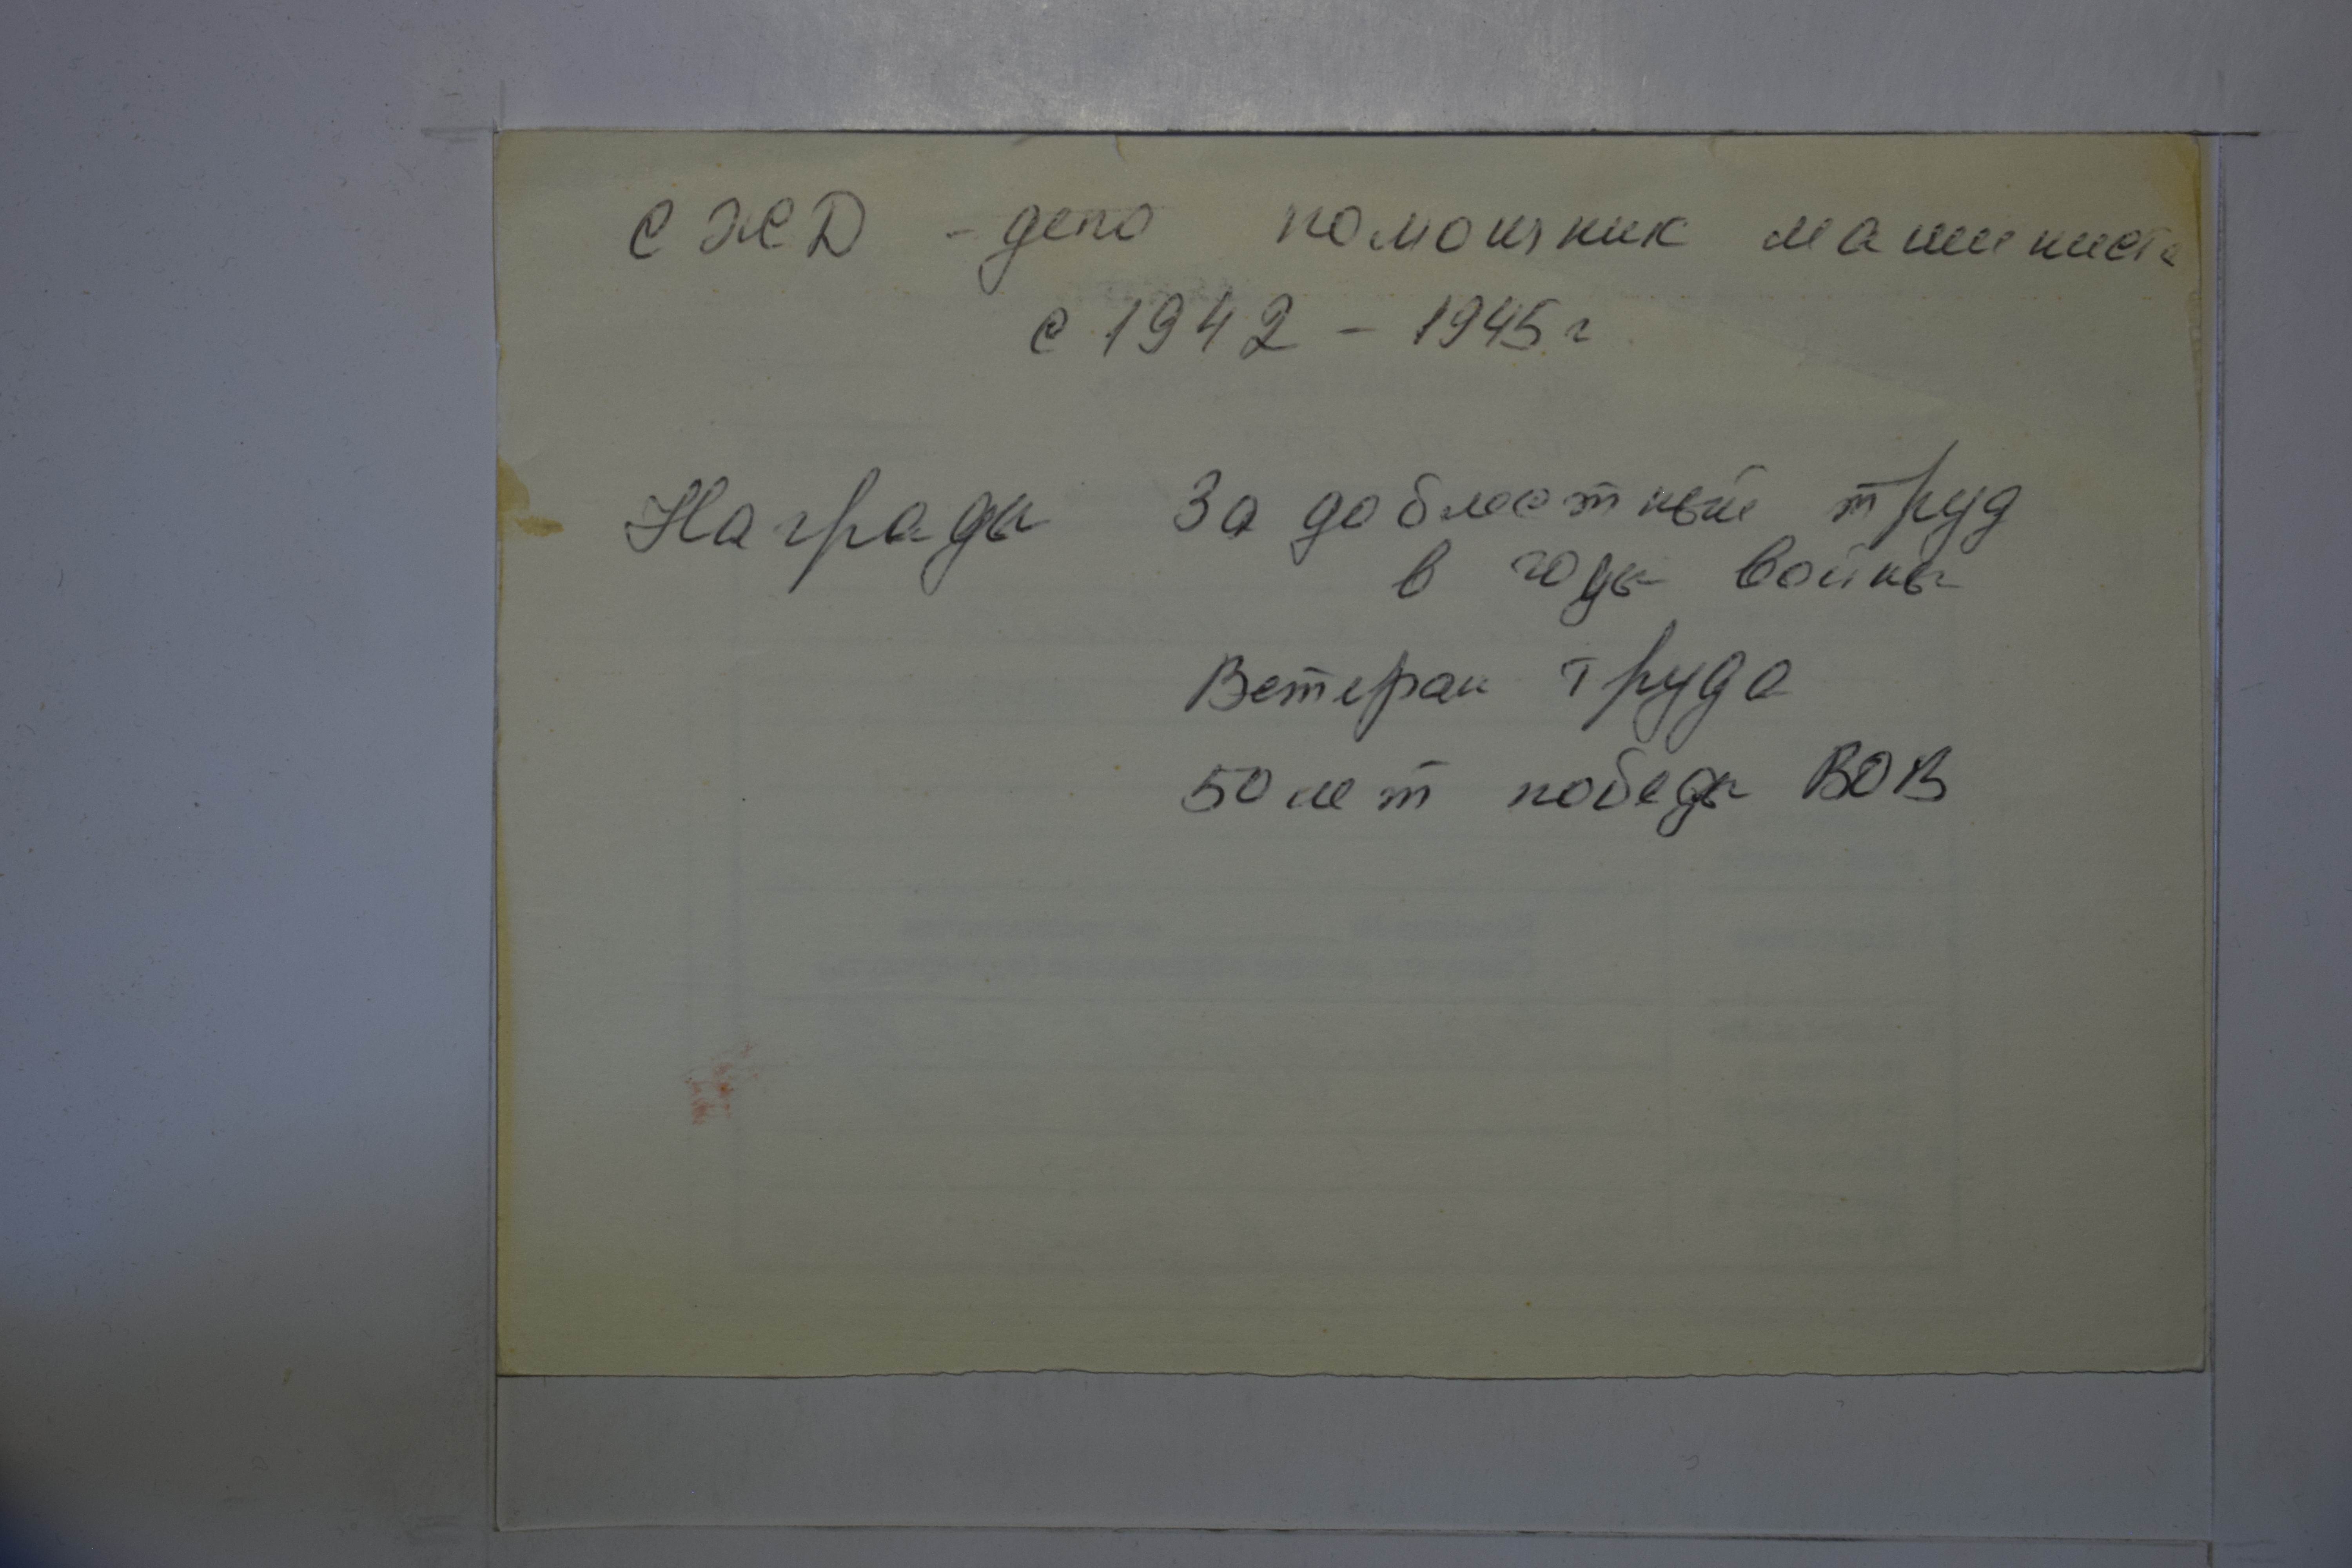 СЖД - депо помощник машиниста
с 1942 - 1945 г.
Награды За доблестный труд
в годы войны
Ветеран труда
50 лет победы ВОВ